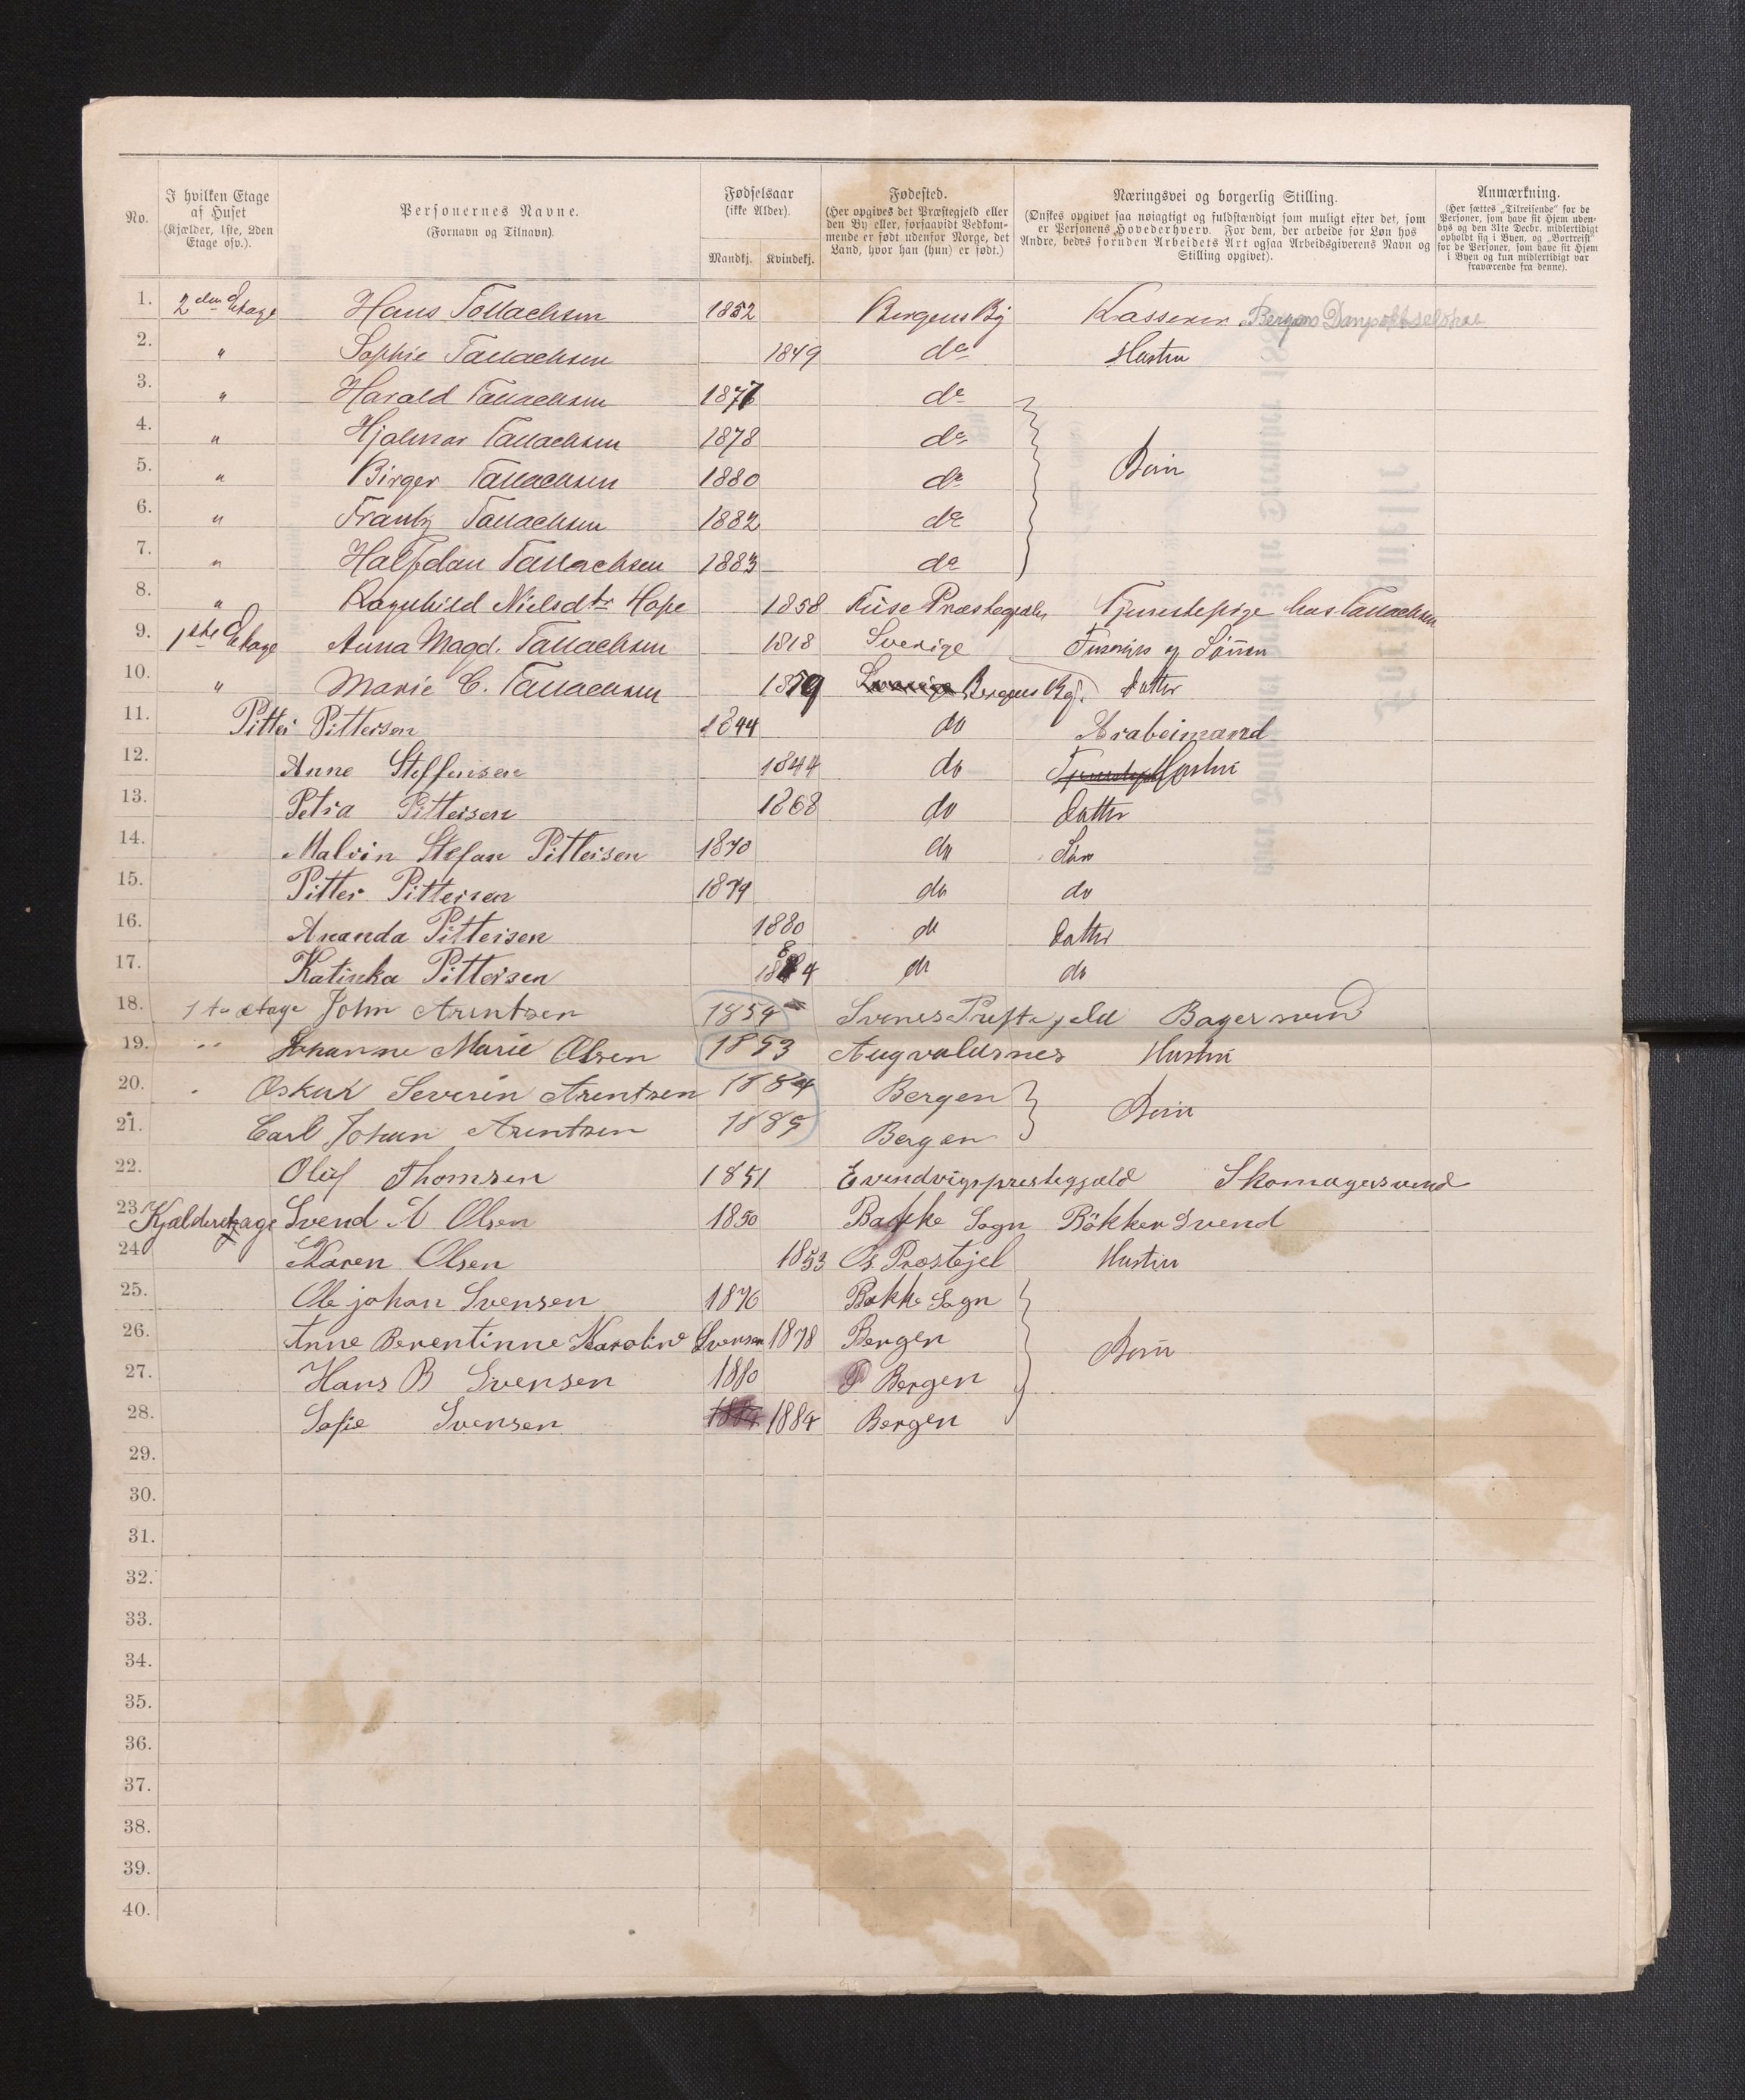 No.
I hvilken Etage af Huset (Kjælder, 1ste, 2den Etage osv.).
Personernes Navne. (Fornavn og Tilnavn).
Fødselsaar (ikke Alder).
Mandkj. Kvindekj.
Fødested. (Her opgives det Præstegjeld eller den By eller, forsaavidt Vedkommende er født udenfor Norge, det Land, hvor han (hun) er født.)
Næringsvei og borgerlig Stilling. (Ønskes opgivet saa nøiagtigt og fuldstændigt som muligt efter det, som er Personens Hovederhverv. For dem, der arbeide for Løn hos Andre, bedes foruden Arbeidets Art ogsaa Arbeidsgiverens Navn og Stilling opgivet).
Anmærkning. (Her sættes „Tilreisende" for de Personer, som have sit Hjem udenbys og den 31te Decbr. midlertidigt opholdt sig i Byen, og „Bortreist" for de Personer, som have sit Hjem i Byen og kun midlertidigt var fraværende fra denne).
1. 2den Etage Hans Tollachsen 1852 Bergens By Kasserer Bergens Dampskibsselskab
2. " Sophie Tallachsen 1849 do Hustru
3. " Harald Tallachsen 1877 do
4. " Hjalmar Tallachsen 1878 do
5. " Birger Tallachsen 1880 do Børn
6. " Frantz Tallachsen 1882 do
7. " Halfdan Tallachsen 1883 do
8. " Ragnhild Nielsdtr Hope 1858 Fuse Præstegjæld Tjenestepige hos Tallachsen
9. 1ste Etage Anna Magd. Tallachsen 1818 Sverige Sønnen
10. " Marie C. Tallachsen 1859 Sverige Bergens By. Datter
11. Pitter Pittersen 1844 do Arabeimand
12. Anne Steffensen 1844 do Hustru
13. Petra Pittersen 1868 do Datter
14. Malvin Stefan Pittersen 1870 do Søn
15. Pitter Pittersen 1879 do do
16. Ananda Pittersen 1880 do Datter
17. Katinka Pittersen 1884 do do
18. 1ste etage John Arentsen 1859 Svenes Prestejeld Bagersvend
19. " Johanne Marie Olsen 1853 Augvaldsnes Hustru
20. " Oskar Severin Arentsen 1884 Bergen Børn
21. Carl Johan Arentsen 1885 Bergen
22. Oluf Thomsen 1851 Evindvigsprestegjæld Skomagersvend
23. Kjælderetage Svend A Olsen 1850 Bakke Sogn Bökker Svend
24. Karen Olsen 1853 Os Prostejel Hustru
25. Ole johan Svensen 1876 Bakke Sogn
26. Anne Berentinne Karoline Svensen 1878 Bergen Børn
27. Hans B Svensen 1880 Bergen
28. Sofie Svensen 1884 1884 Bergen
29.
30.
31.
32.
33.
34.
35.
36.
37.
38.
39.
40.